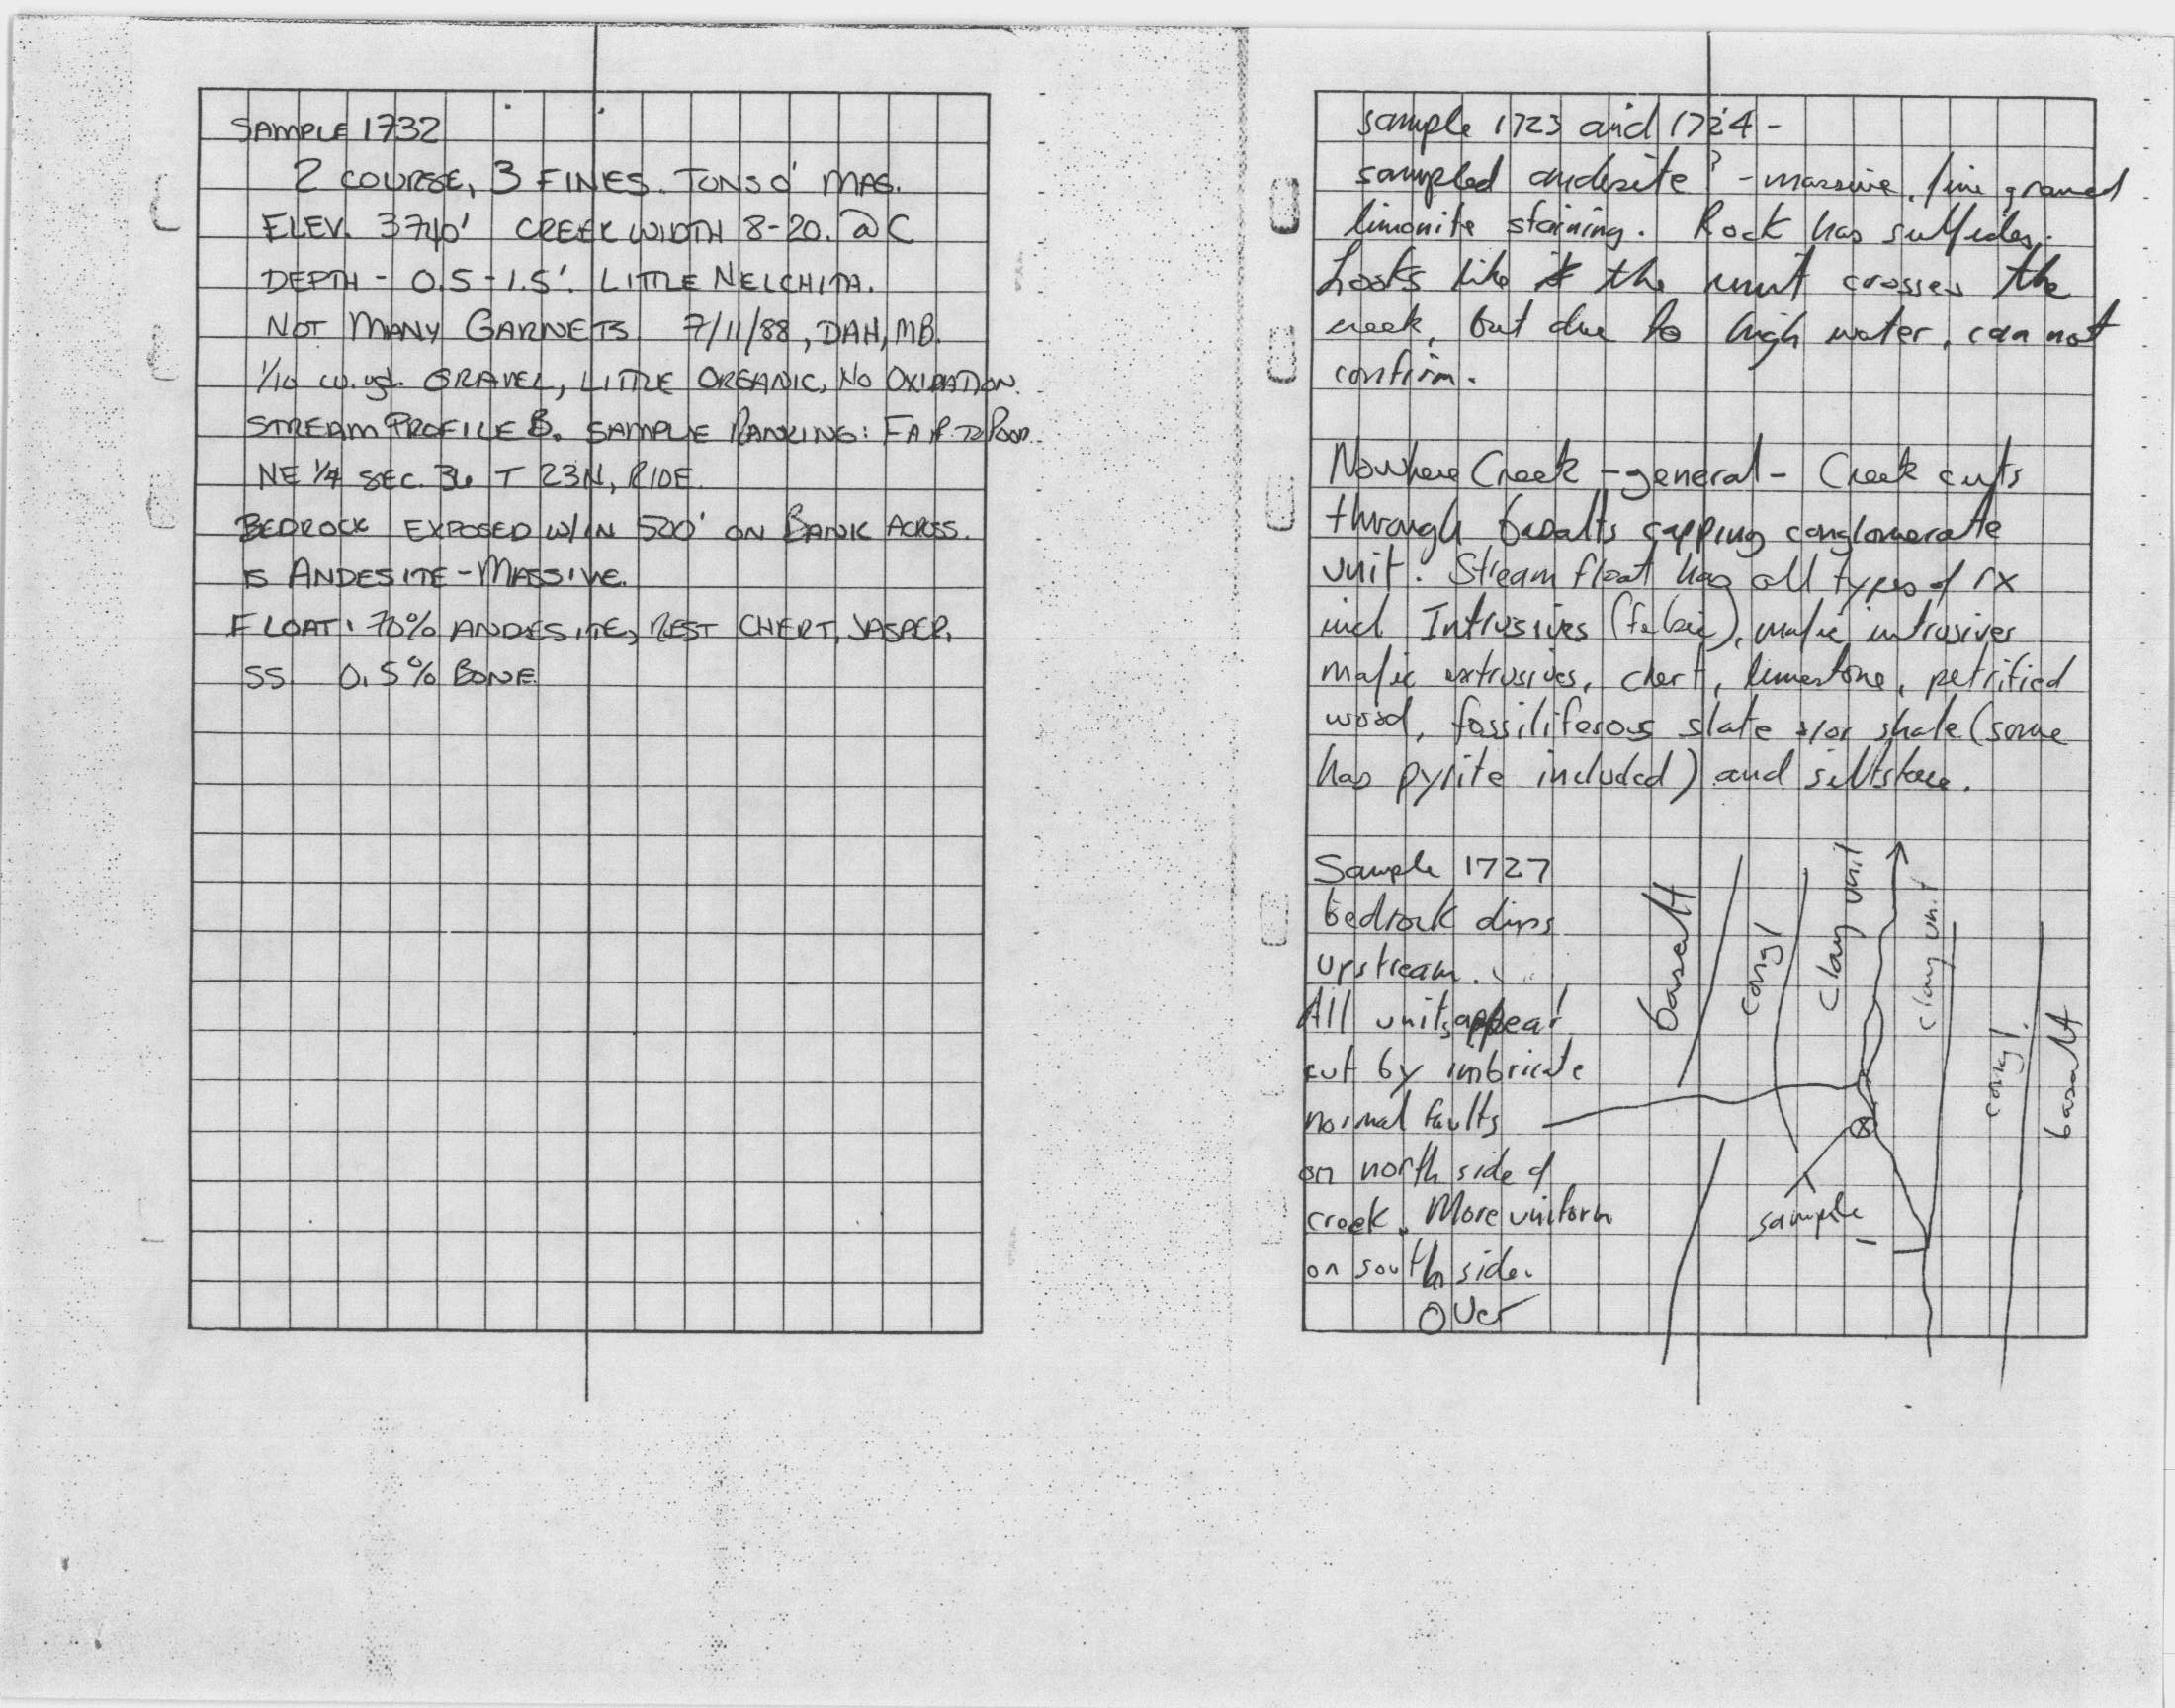 SAMPLE 1732
2 COURSE, 3 FINES. TONS O' MAG.
ELEV. 3740' CREEK WIDTH 8-20. @ C
DEPTH - 0.5-1.5'. LITTLE NELCHINA.
NOT MANY GARNETS 7/11/88, DAH, MB.
1/10 cu. yd. GRAVEL, LITTLE ORGANIC, NO OXIDATION.
STREAM PROFILE B. SAMPLE RANKING: FAIR TO POOR.
NE 1/4 SEC. 36 T 23N, R10E.
BEDROCK EXPOSED W/IN 500' ON BANK ACROSS.
IS ANDESITE - MASSIVE.
FLOAT: 70% ANDESITE, REST CHERT, JASPER,
SS. 0.5% BONE.
sample 1723 and 1724 -
sampled andesite? - massive, fine grained
limonite staining. Rock has sulfides.
Looks like the unit crosses the
creek, but due to high water, can not
confirm.
Nowhere Creek - general - Creek cuts
through basalts capping conglomerate
unit. Stream float has all types of rx
incl Intrusives (felsic), mafic intrusives
mafic extrusives, chert, limestone, petrified
wood, fossiliferous slate &/or shale (some
has pyrite included) and siltstone.
Sample 1727
bedrock dips
upstream.
All units appear
cut by imbricate
normal faults
on north side of
creek. More uniform
on south side.
over
basalt
congl
clay unit
clay unit
congl.
basalt
sample